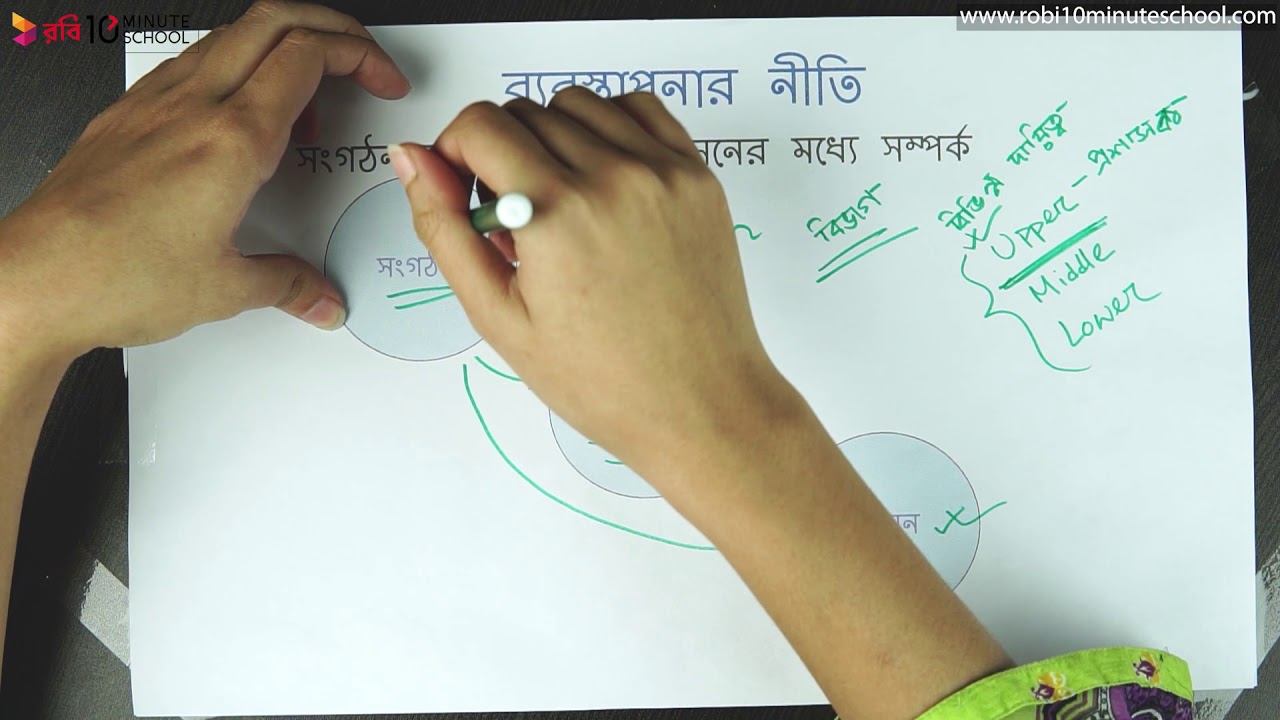 রবি 10 MINUTE SCHOOL
www.robi10minuteschool.com
ব্যবস্থাপনার নীতি
সংগঠন নের মধ্যে সম্পর্ক
বিভাগ
বিভিন্ন দায়িত্ব
Upper - প্রশাসক
Middle
Lower
সংগঠ
ন